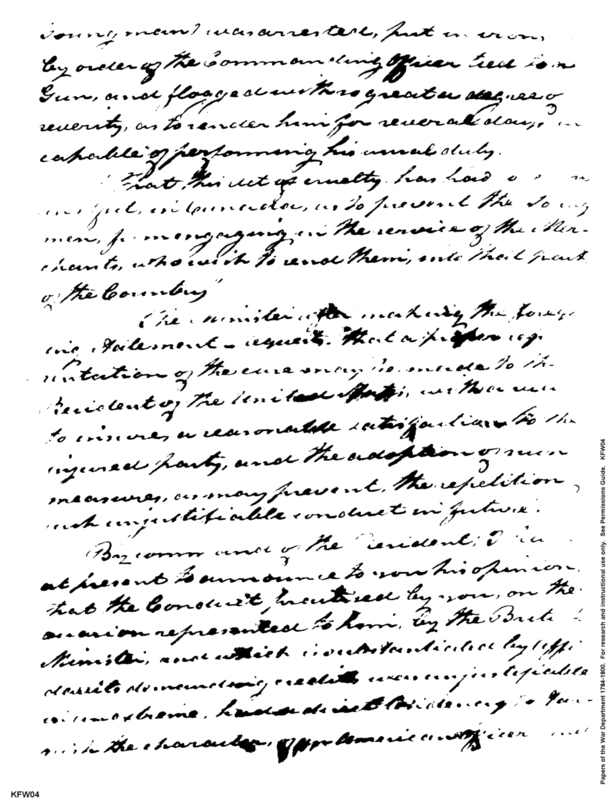 young man) was arrested, put in irons
by order of the Commanding Officer tied to a
Gun, and flogged with so great a degree of
severity, as to render him for several days, in
capable of performing his usual duly.
That, this act of cruelty has had
in Canada, as to prevent the young
men, from engaging in the service of the Mer-
chants, who wish to send them, into that part
of the Country
The Minister after making the forego
ing statement requests that a proper rep
sentation of the case may be made to the
President of the United States, with a view
to insure, a reasonable satisfaction to the
injured party, and the adoption of such
measures, as may prevent, the repetition
such unjustifiable conduct in future.
By command of the President, I
at present to announce to you his opinion,
that the Conduct, practised by you, on the
occasion represented to him, by the British
Minister, and which is substantiated by affi
davits demanding credit, was unjustifiable
in an extreme, had a direct tendency to tar-
nish the character, of an American officer and
KFW04
Papers of the War Department 1784-1800. For research and instructional use only. See Permissions Guide. KFW04